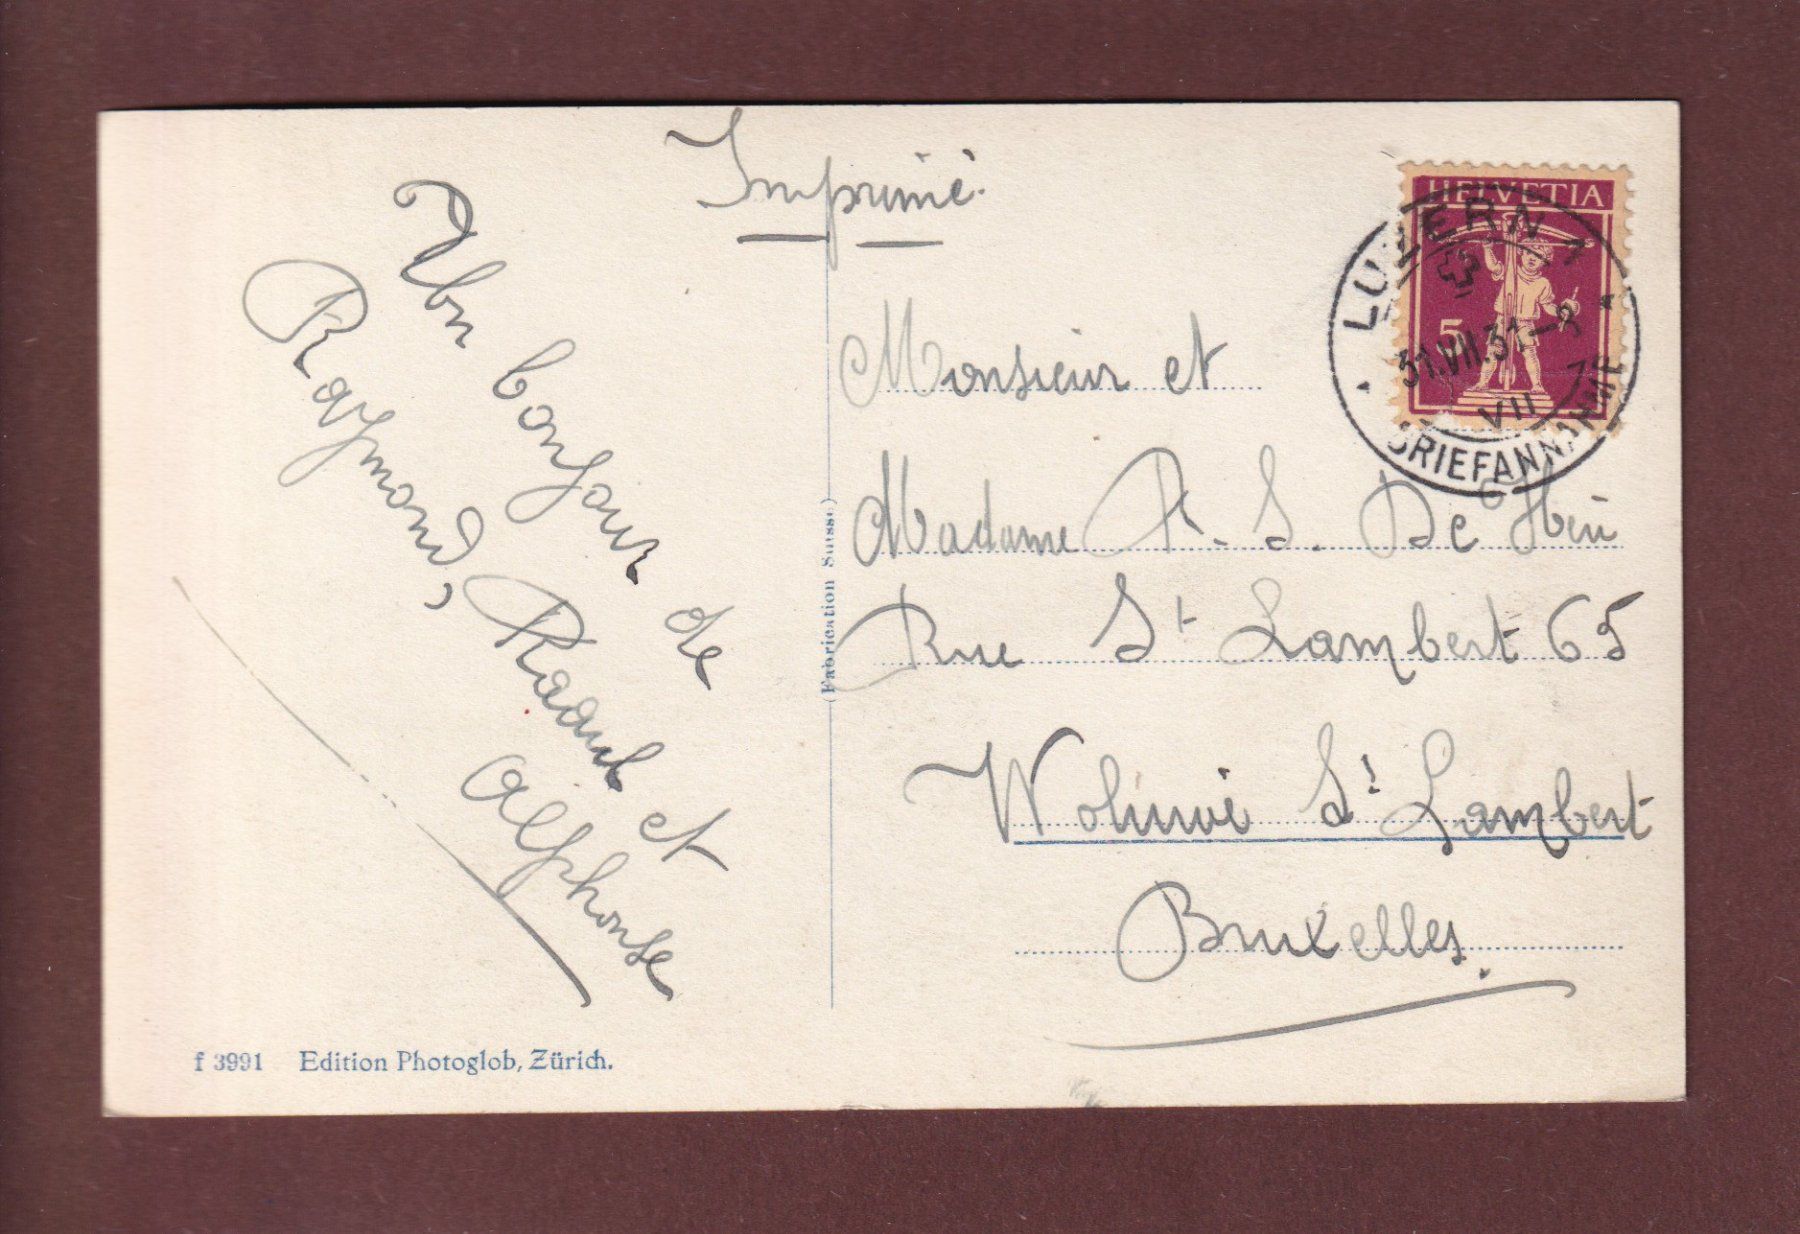 Imprimé
Un bonjour de
Raymond, Raoul et
Alphonse
Monsieur et
Madame A. S. De
Rue St Lambert 65
Woluwé St Lambert
Bruxelles.
(Fabrication Suisse)
f 3991 Edition Photoglob, Zürich.
HELVETIA
5
LUZERN 1
31.VII.31-8
VII
BRIEFANNAHME